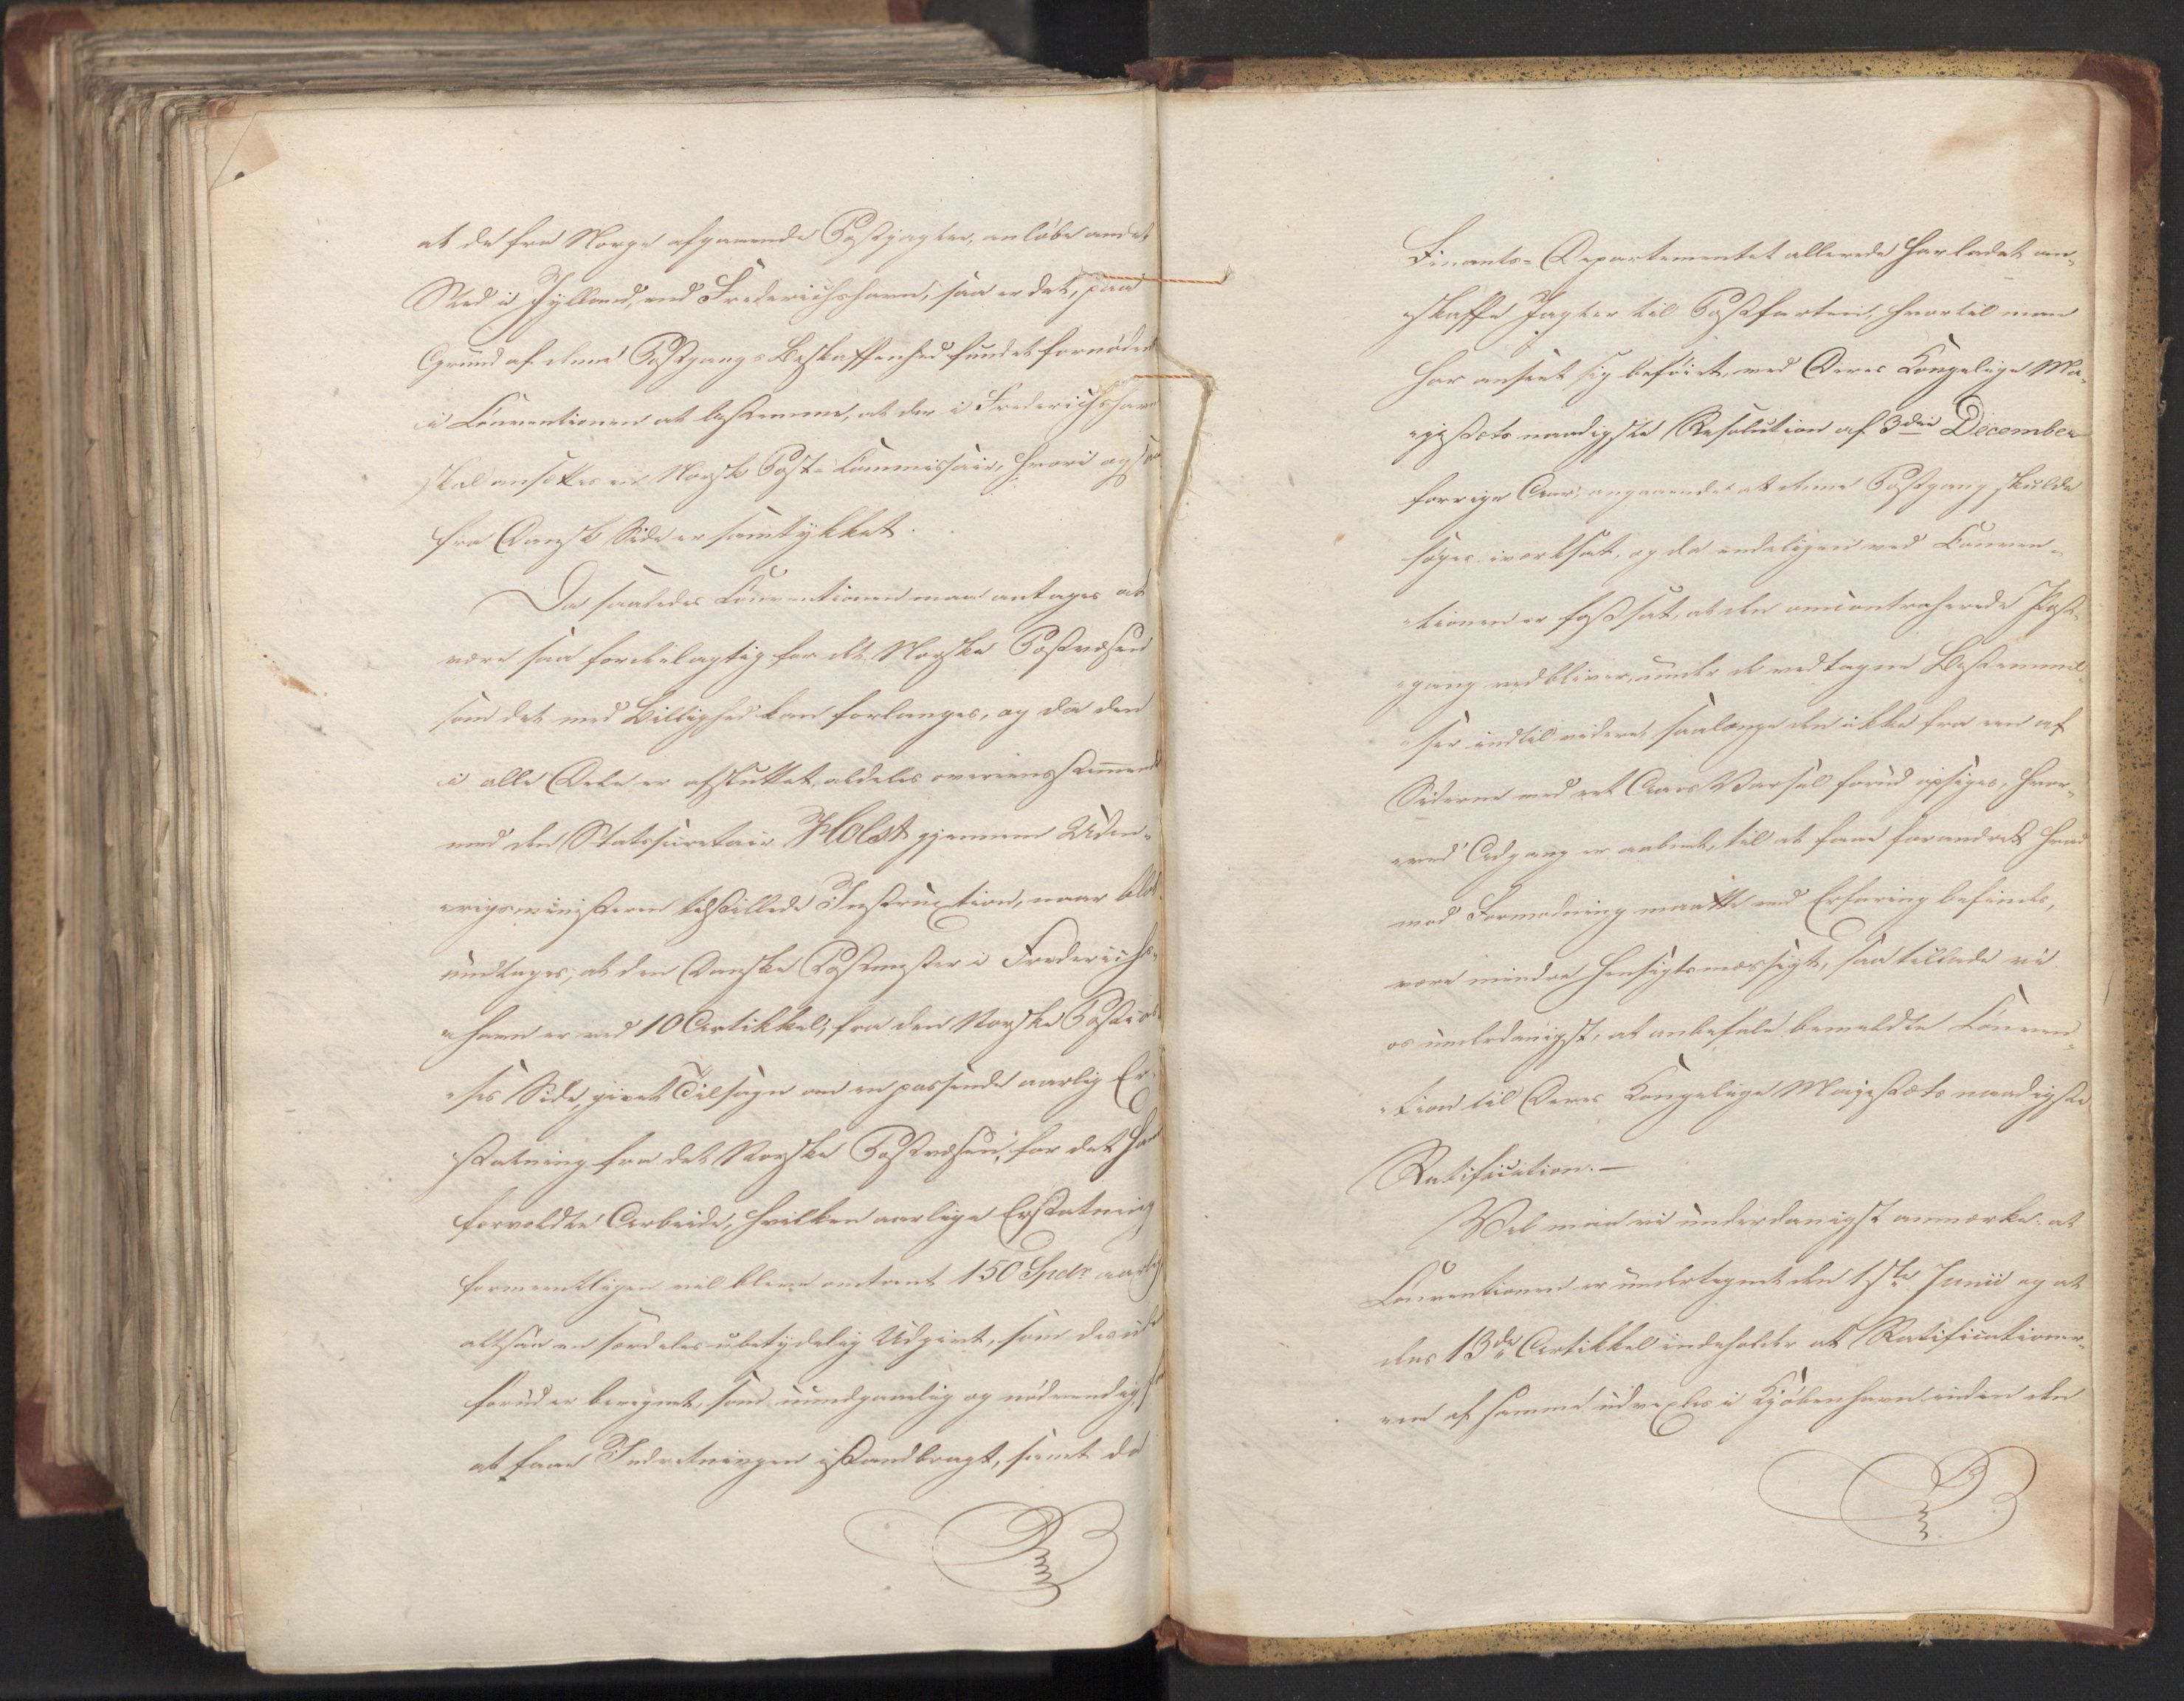 at de fra Norge afgaaende Postjagter, anløbe andet
Sted i Jylland, end Frederichshavn, saa er det, paa
Grund af denne Postgangs Beskaffenhed fundet fornøden
i Conventionen at bestemme, at der i Frederichshavn
skal ansættes en Norsk Post-Commissair, hvori ogsaa
fra Dansk Side er samtykket.
Da saaledes Conventionen maa antages at
være saa fordeelagtig for det Norske Postvæsen
som det med Billighed kan forlanges, og da den
i alle Dele er afsluttet, aldeles overeensstemmende
med den Statssecretair Holst gjennem Uden-
rigsministeren tilstillede Instruction, naar blot
undtages, at den Danske Postmester i Frederichs-
havn er ved 10 Artikkel, fra den Norske
Side, givet Tilsagn om en passende aarlig Er-
statning fra det Norske Postvæsen, for det ham
forvoldte Arbeide, hvilken aarlige Erstatning
formeentligen vil blive omtrent 150 Spdr aarlig
altsaa en særdeles ubetydelig Udgivt, som desuden
forud er beregnet, som uundgaaelig og nødvendig for
at faae Indretningen istandbragt, samt da
Finants-Departementet allerede har ladet an-
skaffe Jagter til Postfarten, hvortil man
har anseet sig beføiet, ved Deres Kongelige Ma-
jestæts naadigste Resolution af 3die December
forrige Aar, angaaende at denne Postgang skulde
søges iværksat, og da endeligen ved Conven-
tionen er fastsat, at den omcontraherede Post-
gang vedbliver, under de vedtagne Bestemmel-
ser indtil videre, saalænge den ikke fra een af
Siderne med eet Aars Varsel forud opsiges, hvor-
ved Adgang er aabnet, til at faae forandret hvad
mod Formodning maatte ved Erfaring befindes,
være mindre hensigtsmæssigt, saa tillade vi
os underdanigst, at anbefale bemeldte Conven-
tion til Deres Kongelige Majestæts naadigste
Ratification.—
Vel maa vi underdanigst anmærke, at
Conventionen er undertegnet den 1ste Junii og at
dens 13de Artikkel indeholder at Ratificationer-
ne af samme udvexles i Kjøbenhavn inden den